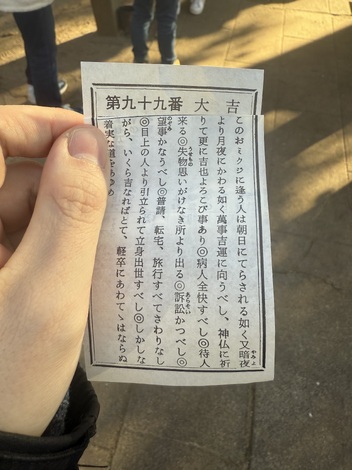 第九十九番 大吉
このおミクジに逢う人は朝日にてらされる如く又暗夜
より月夜にかわる如く萬事吉運に向うべし、神仏に祈
りて更に吉也よろこび事あり◎病人全快すべし◎待人
来る◎失物思いがけなき所より出る◎訴訟かつべし◎
望事かなうべし◎普請、転宅、旅行すべてさわりなし
◎目上の人より引立られて立身出世すべし◎しかしな
がら、いくら吉なればとて、軽卒にあわてゝはならぬ
着実な